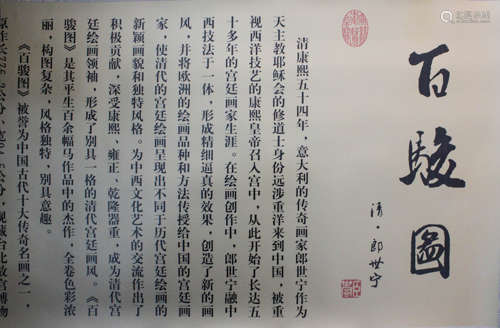 百駿圖
清·郎世宁
清康熙五十四年，意大利的传奇画家郎世宁作为
天主教耶稣会的修道士身份远涉重洋来到中国，被重
视西洋技艺的康熙皇帝召入宫中，从此开始了长达五
十多年的宫廷画家生涯。在绘画创作中，郎世宁融中
西技法于一体，形成精细逼真的效果，创造了新的画
风，并将欧洲的绘画品种和方法传授给中国的宫廷画
家，使清代的宫廷绘画呈现出不同于历代宫廷绘画的
新颖画貌和独特风格。为中西文化艺术的交流作出了
积极贡献，深受康熙、雍正、乾隆器重，成为清代宫
廷绘画领袖，形成了别具一格的清代宫廷画风。《百
骏图》是其平生百余幅马作品中的杰作，全卷色彩浓
丽，构图复杂，风格独特，别具意趣。
《百骏图》被誉为中国古代十大传奇名画之一，
现藏台北故宫博物